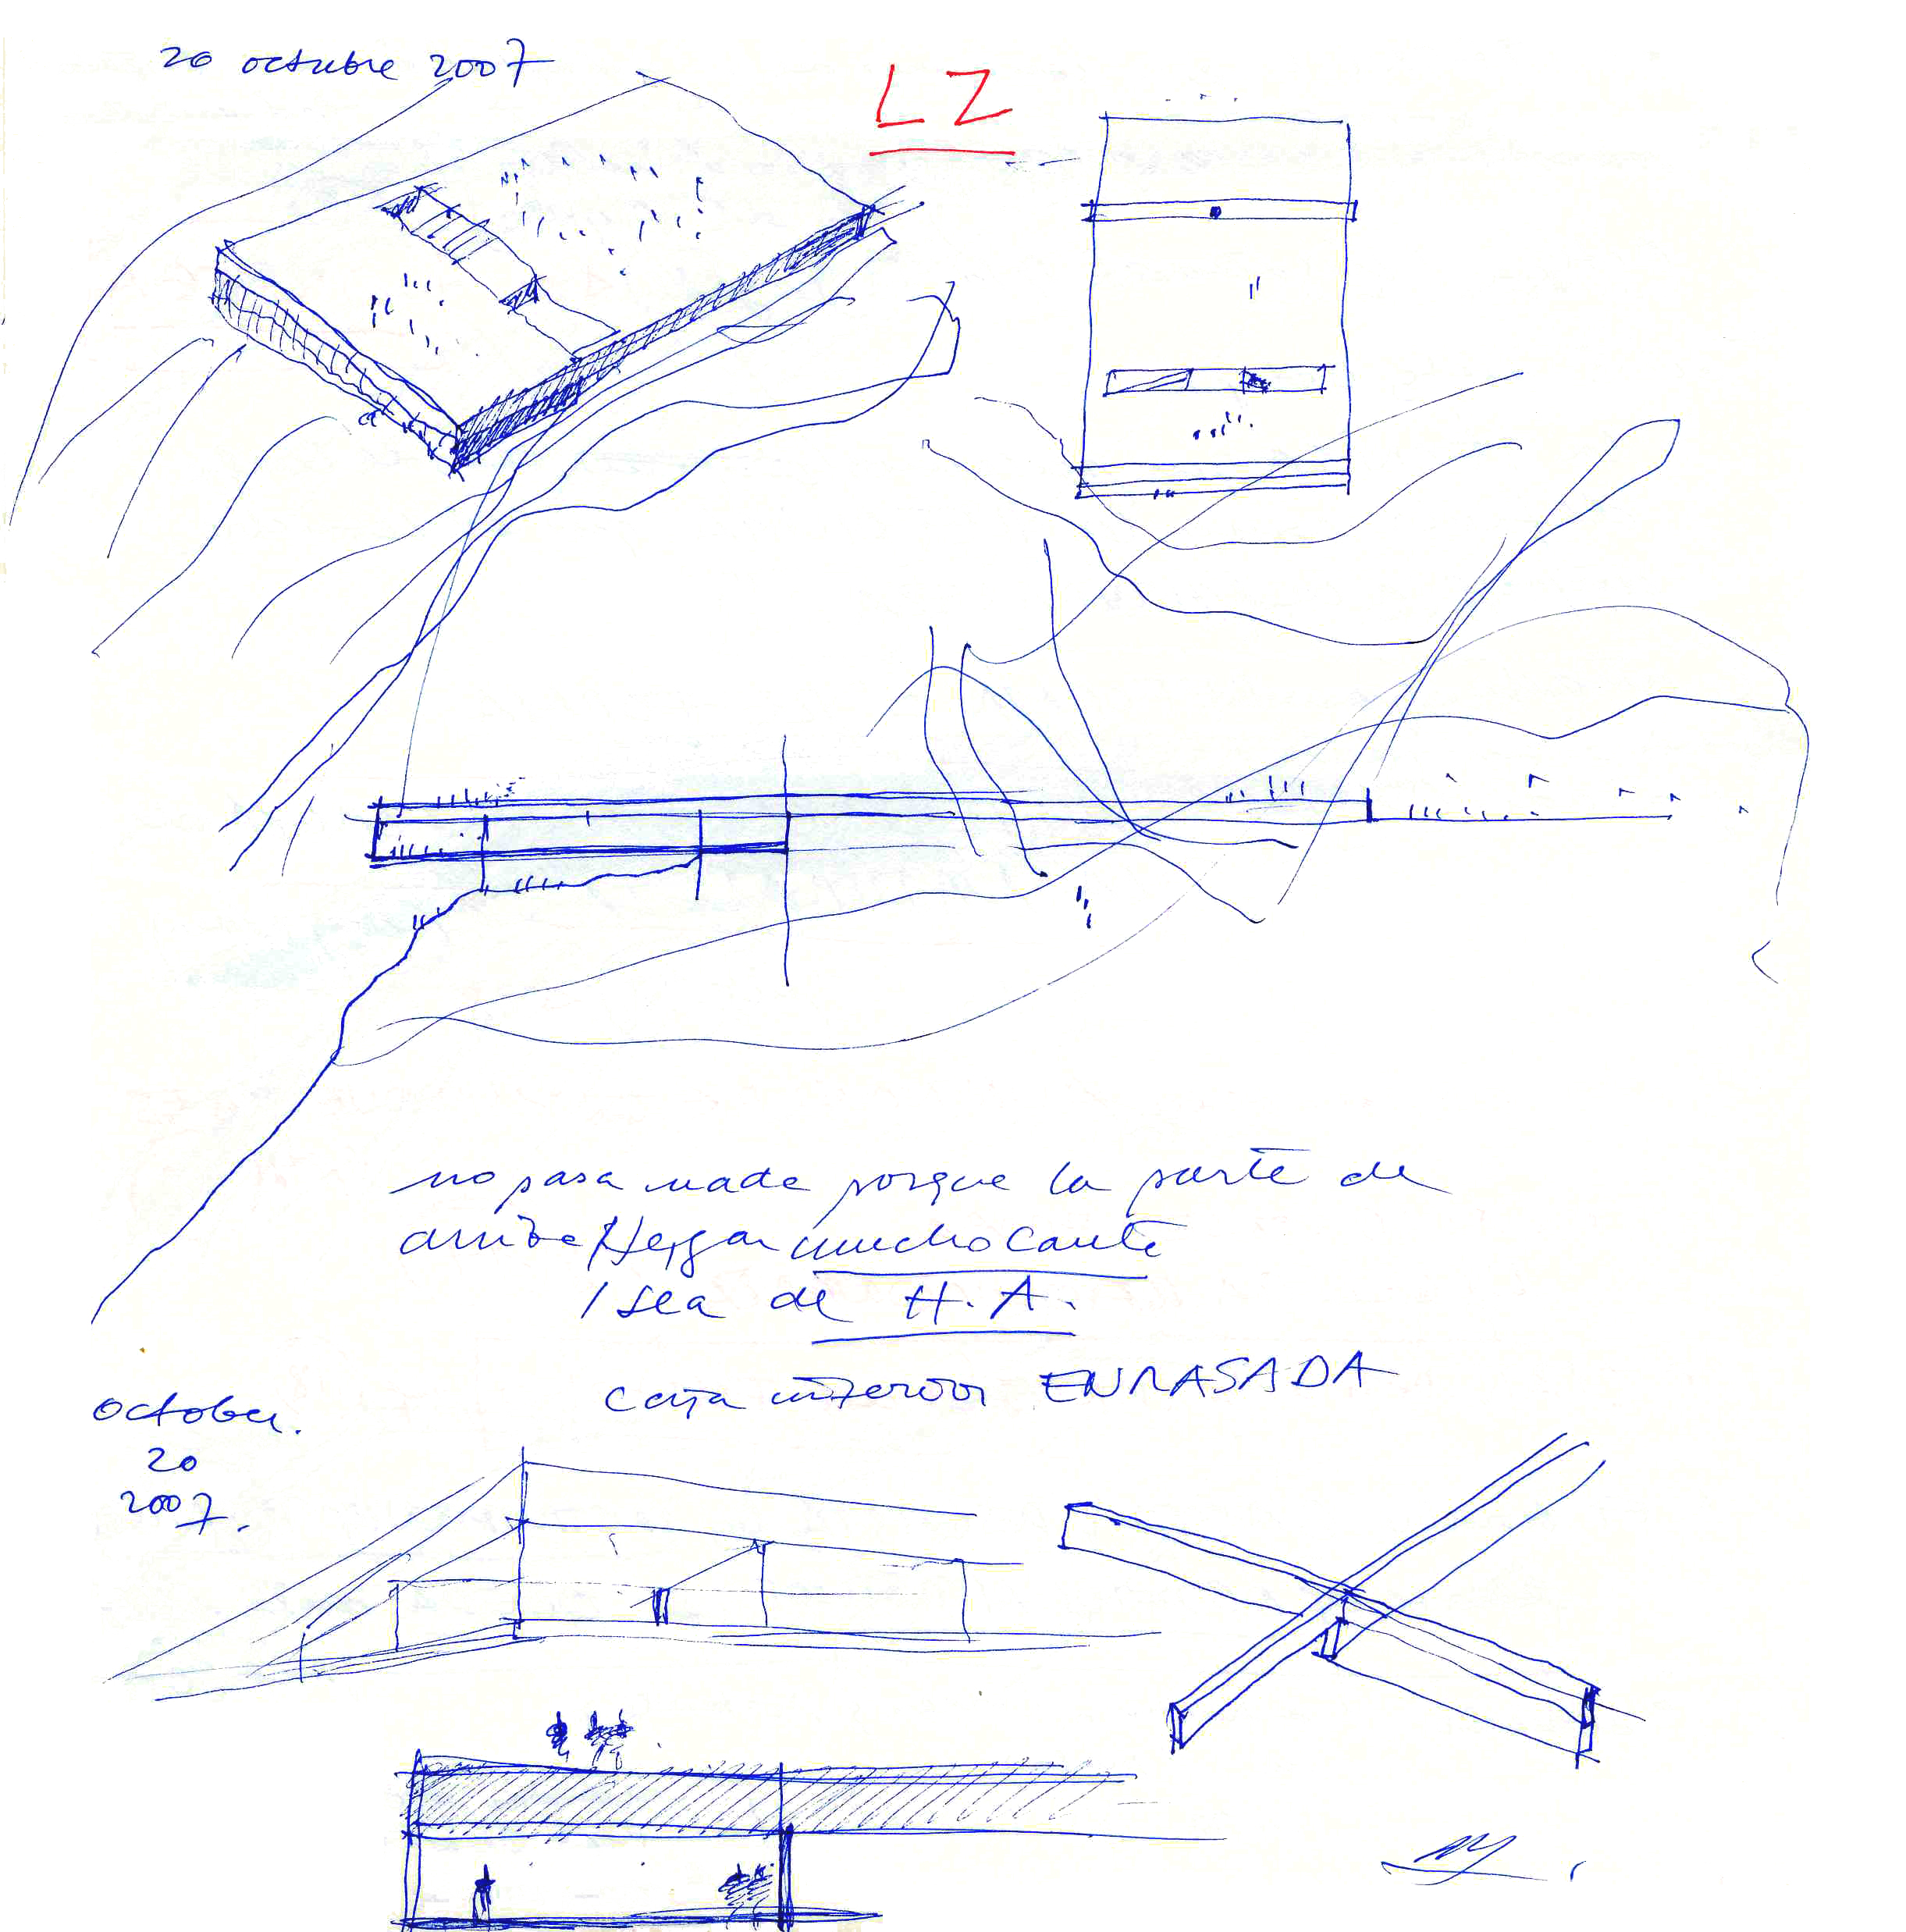 20 octubre 2007
LZ
no pasa nada porque la parte de
arriba tenga mucho canto
/ sea de H.A.
caja inferior ENRASADA
October.
20
2007.